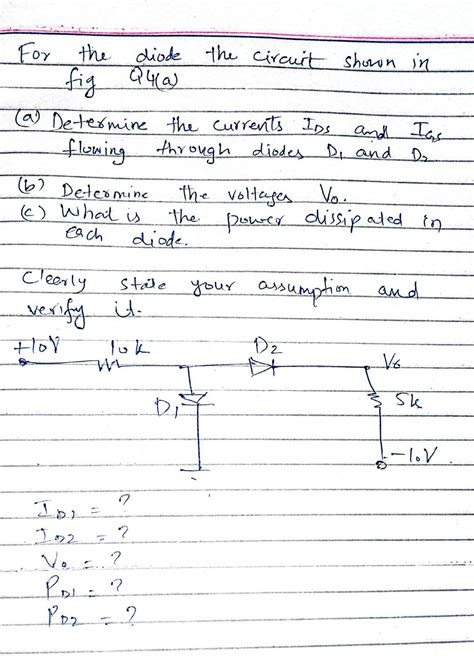 For the diode the circuit shown in
fig Q4(a)
(a) Determine the currents IDS and IGS
flowing through diodes D1 and D2
(b) Determine the voltages Vo.
(c) What is the power dissipated in
each diode.
Clearly state your assumption and
verify it.
+10V 10k D2 Vo
D1 5k
-10V
ID1 = ?
ID2 = ?
Vo = ?
PD1 = ?
PD2 = ?